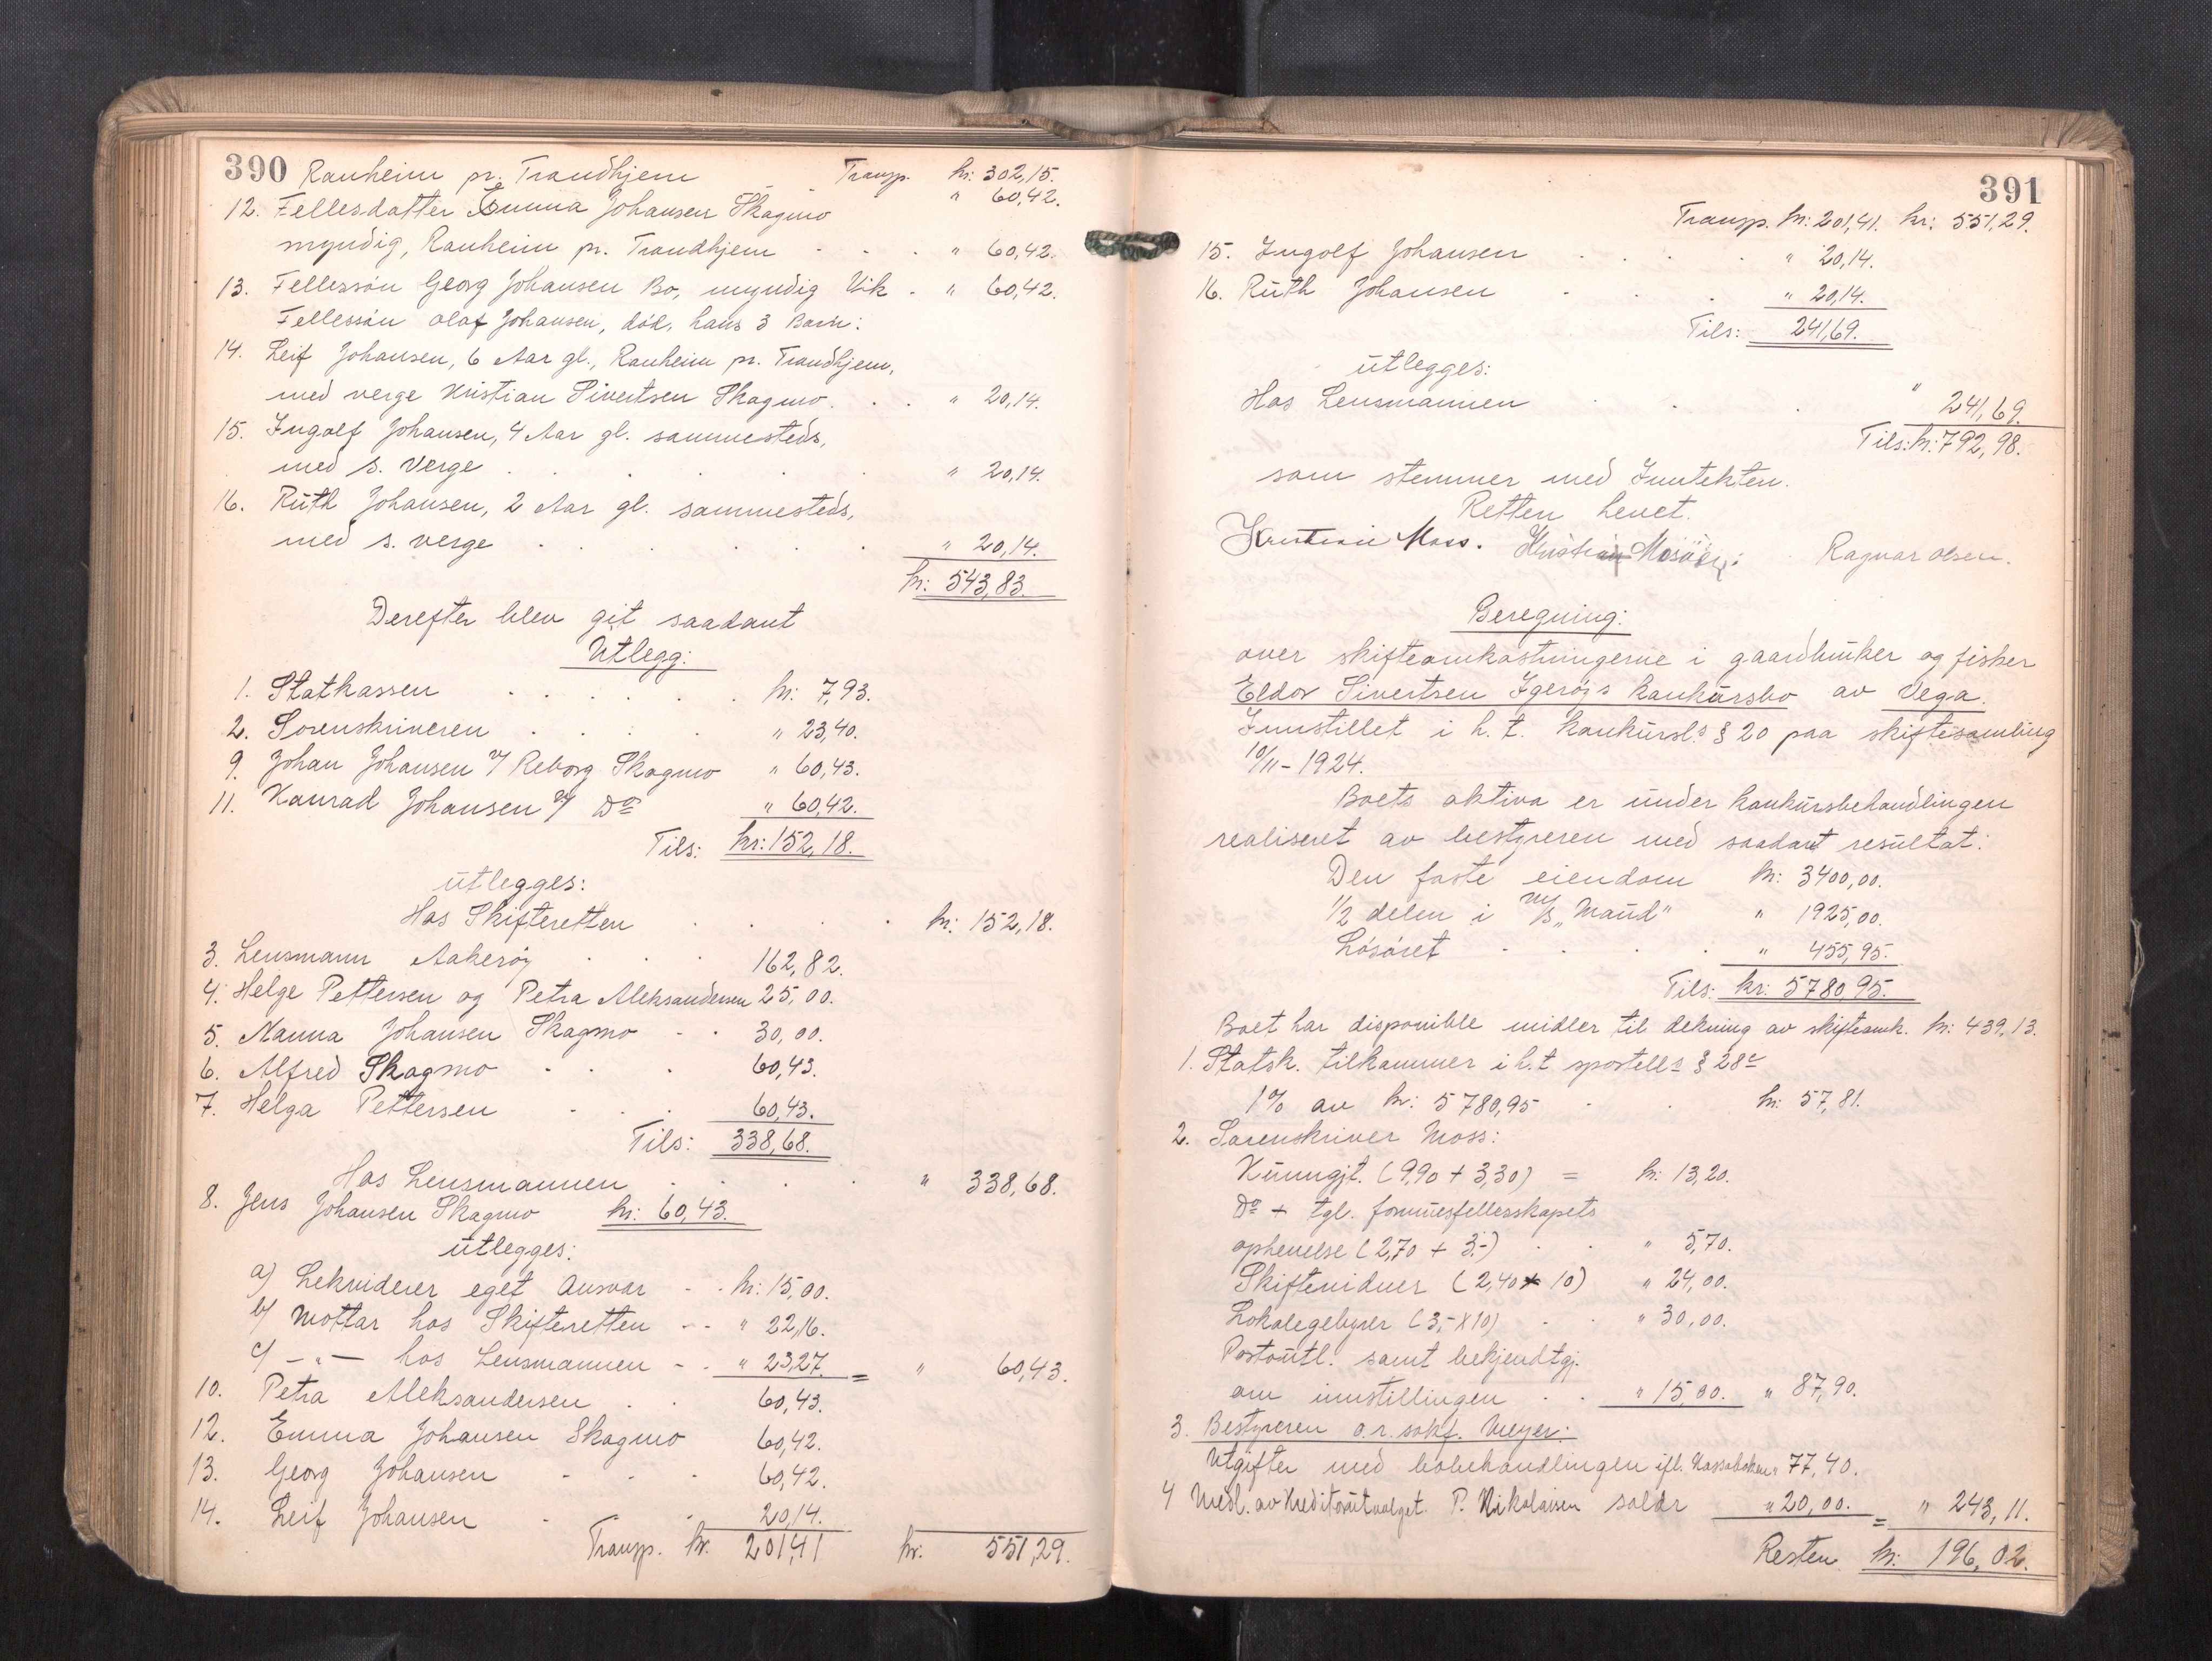 390 Ranheim pr. Trondhjem Transp. kr: 302,15.
12. Fellesdatter Emma Johansen Skagmo " 60,42.
myndig, Ranheim pr. Trondhjem . . . " 60,42.
13. Fellessön Georg Johansen Bo, myndig Vik . " 60,42.
Fellessön Olaf Johansen, död, hans 3 Barn:
14. Leif Johansen, 6 Aar gl., Ranheim pr. Trondhjem,
med verge Kristian Sivertsen Skagmo . . . " 20,14.
15. Ingolf Johansen, 4 Aar gl. sammesteds,
med s. verge . . . . . " 20,14.
16. Ruth Johansen, 2 Aar gl. sammesteds,
med s. verge . . . . . " 20,14.
kr: 543,83.
Derefter blev git saadant
Utlegg:
1. Statkassen . . . . . kr: 7,93.
2. Sorenskriveren . . . . " 23,40.
9. Johan Johansen v/ Reborg Skagmo " 60,43.
11. Konrad Johansen v/ Do " 60,42.
Tils: kr: 152,18.
utlegges:
Hos Skifteretten . . . . kr: 152,18.
3. Lensmann Aakeröy . . . 162,82.
4. Helge Pettersen og Petra Aleksandersen 25,00.
5. Nanna Johansen Skagmo - . 30,00.
6. Alfred Skagmo . . . 60,43.
7. Helga Pettersen . . . 60,43.
Tils: 338,68.
Hos Lensmannen . . . . " 338,68.
8. Jens Johansen Skagmo kr: 60,43.
utlegges:
a) Lekviderer eget Ansvar - . kr: 15,00.
b) Mottar hos Skifteretten - - " 22,16.
c) - " - hos Lensmannen - . " 23,27. = " 60,43.
10. Petra Aleksandersen . . 60,43.
12. Emma Johansen Skagmo 60,42.
13. Georg Johansen - . . 60,42.
14. Leif Johansen . . 20,14.
Transp. kr. 201,41 kr. 551,29.
391
Transp. kr: 201,41. kr: 551,29.
15. Ingolf Johansen . . . . " 20,14.
16. Ruth Johansen . . . " 20,14.
Tils: 241,69.
utlegges:
Hos Lensmannen . . . " 241,69.
Tils: kr: 792,98.
som stemmer med Inntekten.
Retten hevet.
Kristian Moss. Kristian Ragnar Olsen.
Beregning:
over skifteomkostningerne i gaardbruker og fisker
Eldor Sivertsen Igeröj's konkursbo av Vega.
Innstillet i h. t. konkursl.s § 20 paa skiftesamling
10/11 - 1924.
Boets aktiva er under konkursbehandlingen
realiseret av bestyreren med saadant resultat:
Den faste eiendom kr: 3400,00.
1/2 delen i M/S „Maud" " 1925,00.
Lösöret . . . . " 455,95.
Tils: kr: 5780,95.
Boet har disponible midler til dekning av skifteomk. kr: 439,13.
1. Statsk. tilkommer i h.t sportell.s § 28c
1% av kr: 5780,95 . . kr: 57,81.
2. Sorenskriver Moss:
Kunngjt. (9,90 + 3,30) = kr: 13,20.
Do + tgl. formuesfellesskapets
ophevelse (2,70 + 3.-) . . " 5,70.
Skiftevidner (2,40 x 10) " 24,00.
Lokalegebyrer (3,- X 10) . . " 30,00.
Postoutl. samt bekjendtgj.
om innstillingen . . " 15,00. " 87,90.
3. Bestyreren o.r.sakf. Meyer:
Utgifter med bobehandlingen ifl. Kassaboken " 77,40.
4 Medl. av Kreditorutvalget. P. Nikolaisen saldr " 20,00. = " 243,11.
Resten kr: 196,02.